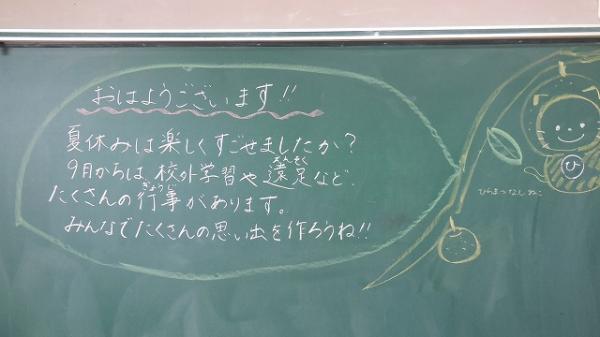 おはようございます!!
夏休みは楽しくすごせましたか?
9月からは、校外学習や遠足など、
えんそく
たくさんの行事があります。
ぎょうじ
みんなでたくさんの思い出を作ろうね!!
ひ